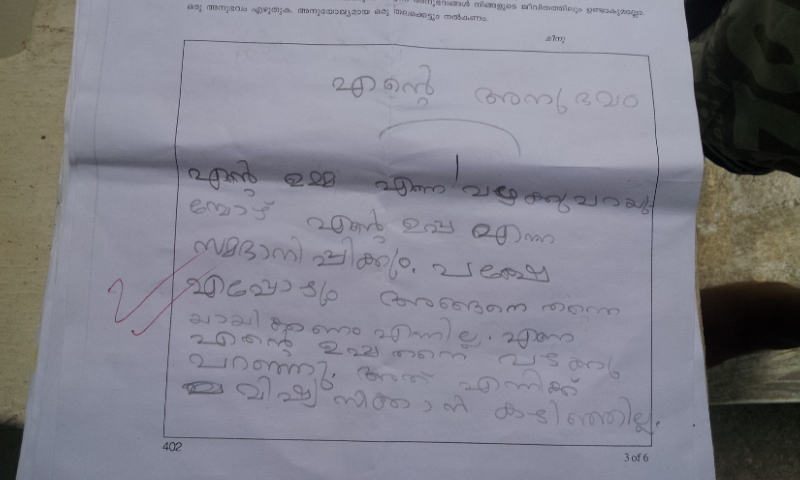 അനുഭവങ്ങൾ നിങ്ങളുടെ ജീവിതത്തിലും ഉണ്ടാകുമല്ലോ.
ഒരു അനുഭവം എഴുതുക. അനുയോജ്യമായ ഒരു തലക്കെട്ടും നൽകണം.
മീനു
എന്റെ അനുഭവം
എന്റെ ഉമ്മ എന്നെ വഴക്കു പറയു
മ്പോഴ് എന്റെ ഉപ്പ എന്ന
സമദാനിപ്പിക്കും. പക്ഷേ
എപ്പോളും അങ്ങനെ തന്നെ
യായിക്കണം എന്നില്ല. എന്ന
എന്റെ ഉപ്പ തന്നെ വഴക്കു
പറഞ്ഞു. അത് എന്നിക്ക്
വിഷ്വസിക്കാൻ കഴിഞ്ഞില്ല.
402
3 of 6